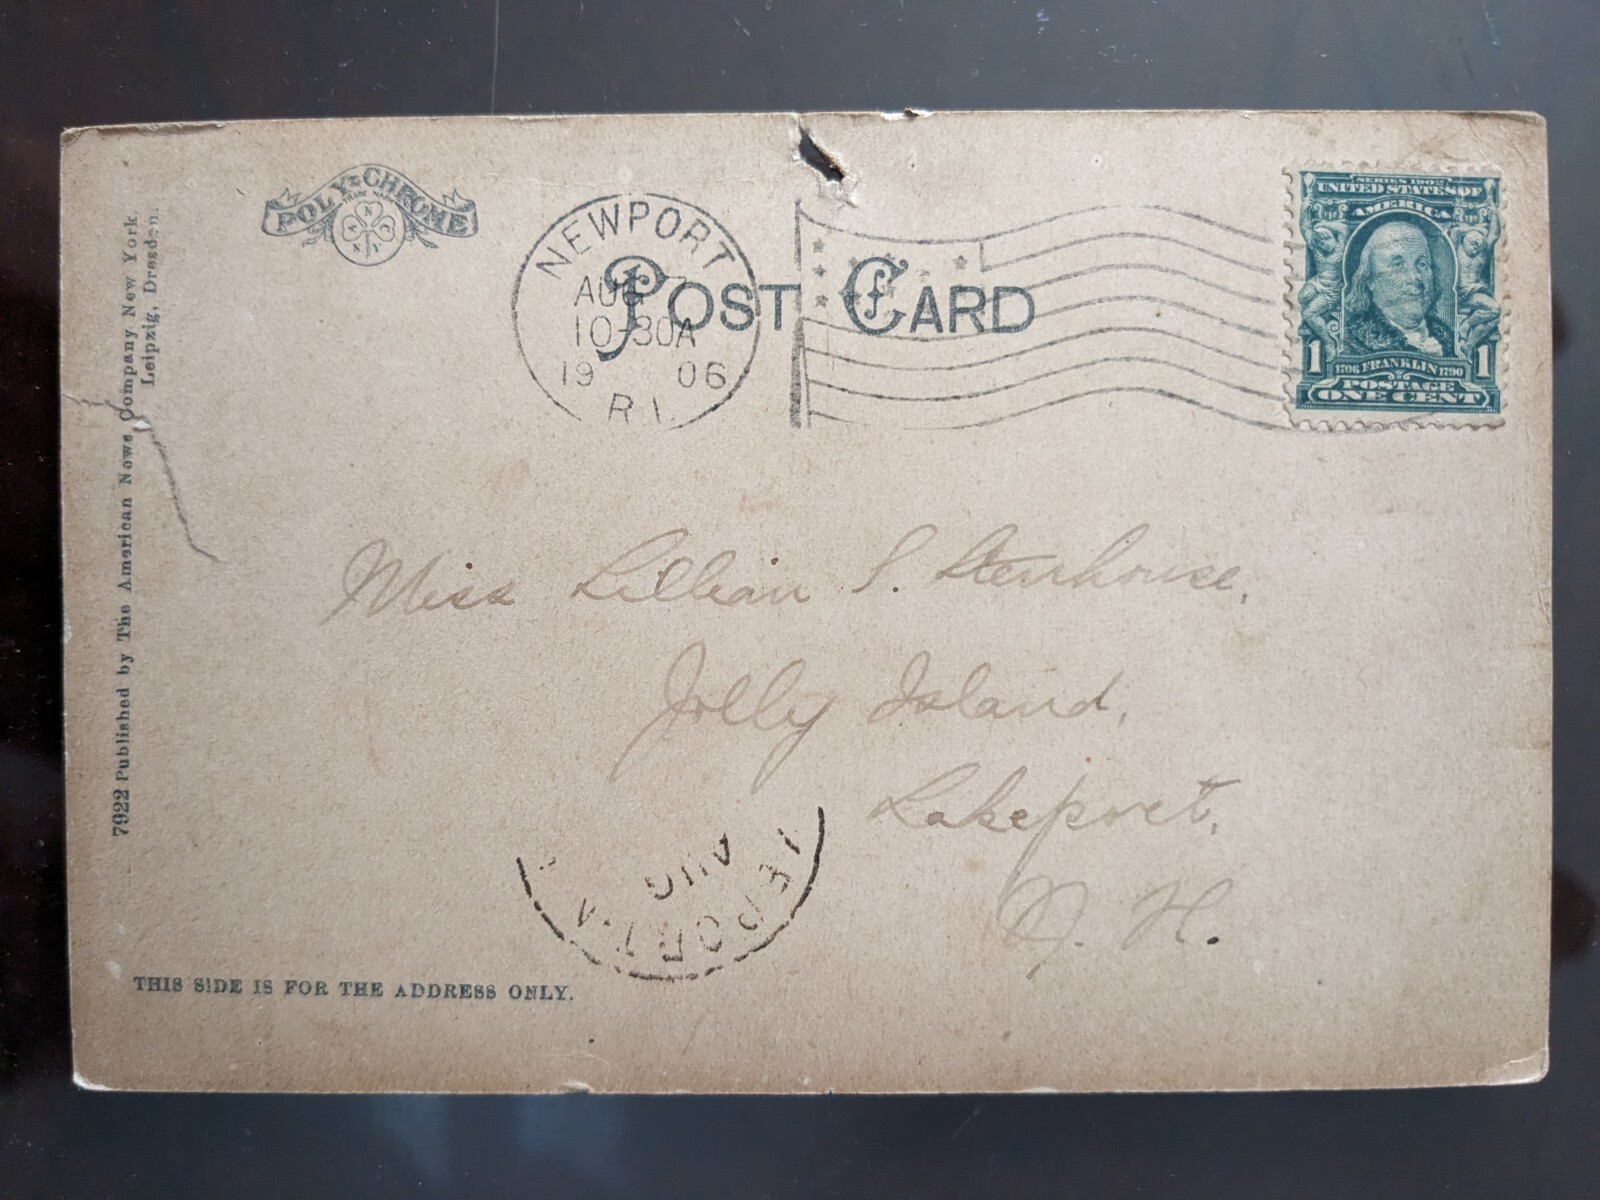 POLY-CHROME
TRADE MARK
NEWPORT
AUG 7
10-30A
19 06
R.I.
POST CARD
SERIES 1902
UNITED STATES OF
AMERICA
1 1706 FRANKLIN 1790 1
POSTAGE
ONE CENT
7922 Published by The American News Company New York.
Leipzig, Dresden.
Miss Lillian S. Stenhouse,
Jolly Island,
Lakeport,
N. H.
AUG
THIS SIDE IS FOR THE ADDRESS ONLY.